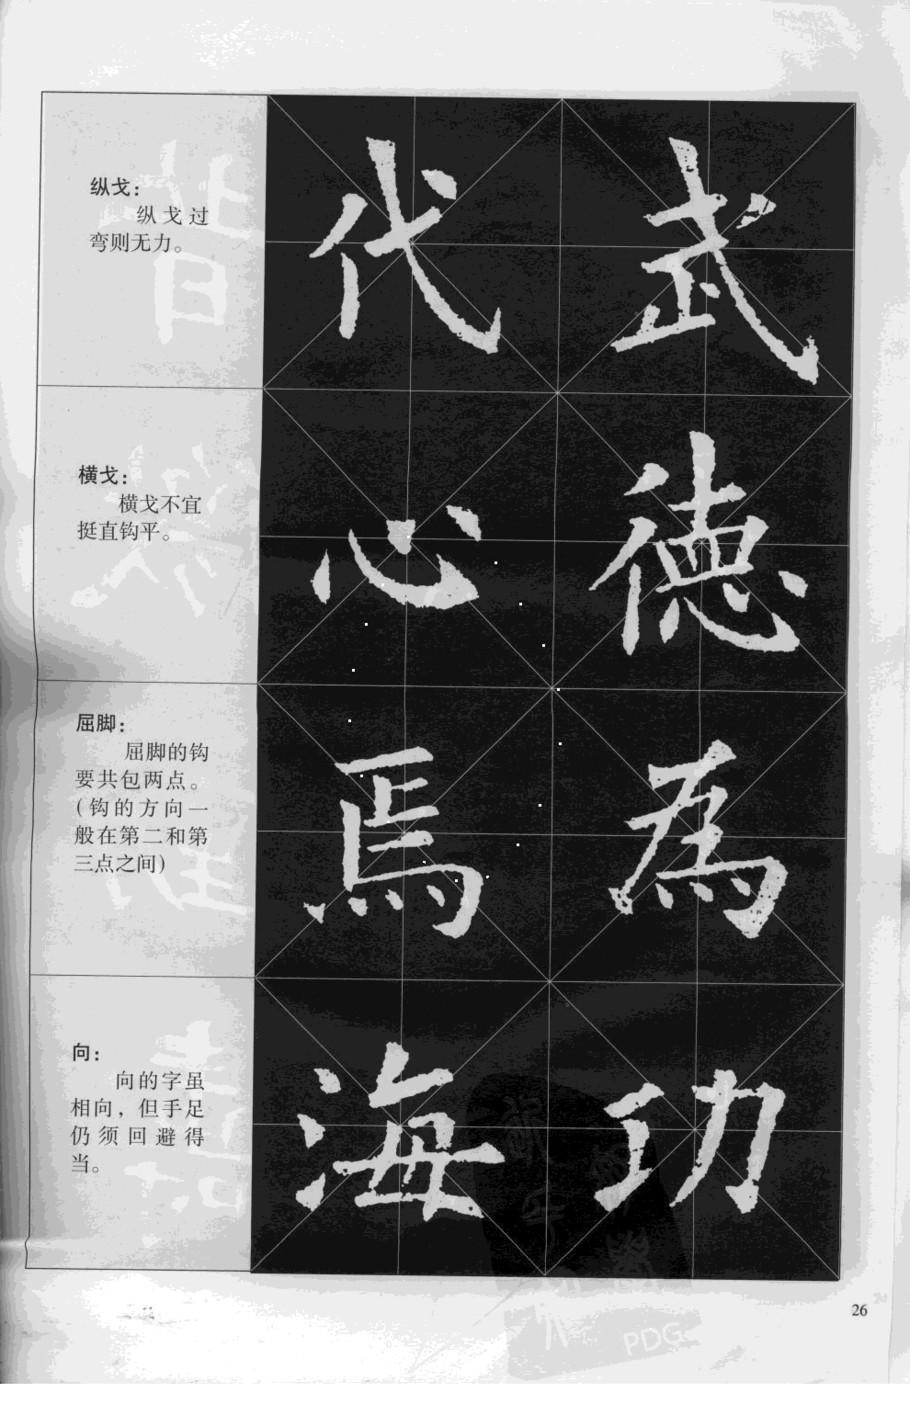 纵戈：
纵戈过
弯则无力。
代武
横戈：
横戈不宜
挺直钩平。
心德
屈脚：
屈脚的钩
要共包两点。
（钩的方向一
般在第二和第
三点之间）
焉為
向：
向的字虽
相向，但手足
仍须回避得
当。
海功
26
PDG